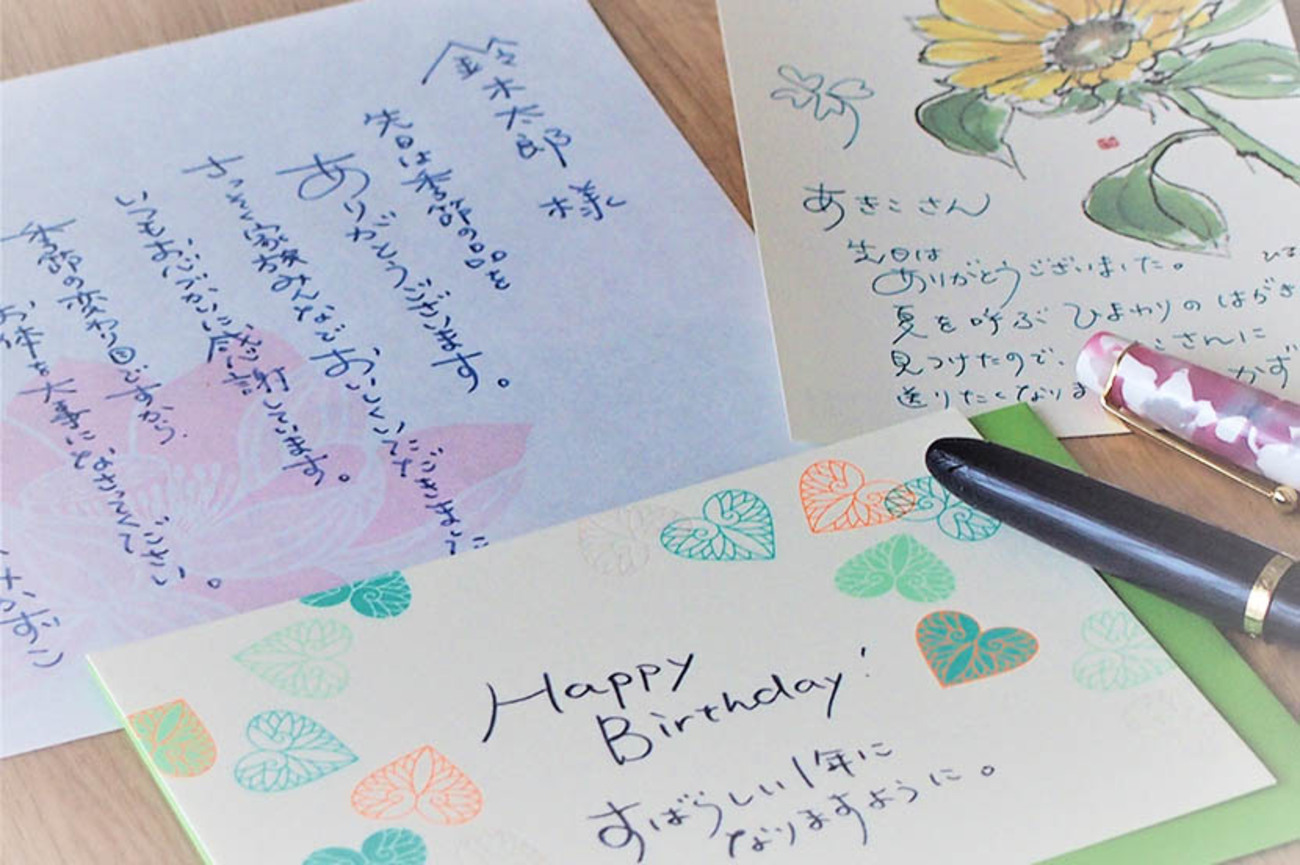 鈴木太郎 様
先日は季節の品を
ありがとうございます。
さっそく家族みんなで おいしく
いつもお心づかいに感謝しています。
季節の変わり目ですから、
お体を大事になさってください。
かずこ
あきこさん
先日は
ありがとうございました。
夏を呼ぶ ひまわりの はがき
見つけたので、 さんに
送りたくなりま
かず
Happy
Birthday!
すばらしい1年に
なりますように。